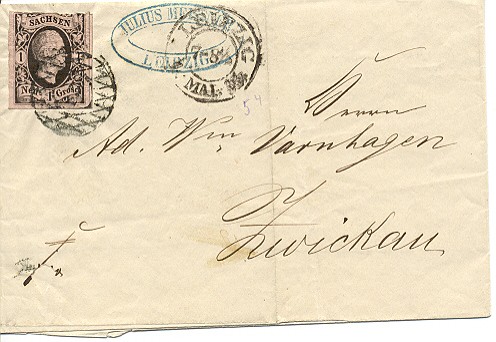 SACHSEN
1 1
Neu-Grosch.
JULIUS
LEIPZIG
LEIPZIG
MAI.
54
Herrn
Ad. Wm Varnhagen
Zwickau